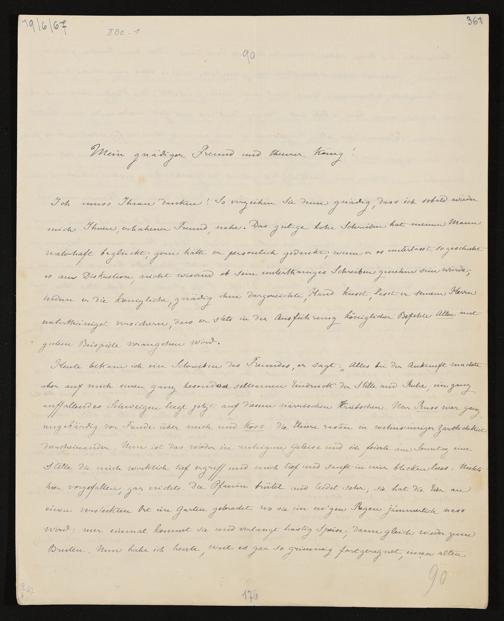 19/6/67
IBC-1
361
90
Mein gnädiger Freund und theurer König!
Ich muss Ihnen danken! So verzeihen Sie denn gnädig, dass ich sobald wieder
mich Ihnen, erhabener Freund, nahe. Das gütige hohe Schreiben hat meinen Mann
wahrhaft beglückt, gern hätte er persönlich gedankt, wenn er es unterlässt so geschieht
es aus Diskretion, nicht wissend ob sein unterthäniges Schreiben genehm sein würde;
indem er die königliche, gnädig ihm dargereichte, Hand küsst, lässt er seinem Herrn
unterthänigst versichern, dass er stets in der Ausführung königlicher Befehle Allen mit
gutem Beispiele vorangehen wird.
Heute bekam ich ein Schreiben des Freundes, er sagt: „Alles bei der Ankunft machte
aber auf mich einen ganz besonders seltsamen Eindruck der Stille und Ruhe, ein ganz
auffallendes Schweigen liegt jetzt auf dem närrischen Triebschen. Nur Russ war ganz
unbändig vor Freude über mich und Koss: die Thiere rasten in wahnsinniger Zärtlichkeit
durcheinander. Nun ist das wieder im ruhigen Geleise und ich feierte am Sonntag eine
Stille die mich wirklich tief ergriff und mich tief und sanft in mir blicken liess. Nichts
hier vorgefallen, gar nichts. Die Pfauin brütet und leidet sehr, sie hat die Eier an
einem versteckten Ort im Garten gebrütet wo sie im ewigen Regen jämmerlich nass
wird: nur einmal kommt sie und verlangt hastig Speise, dann gleich wieder zum
Brüten. Nun habe ich heute, weil es gar so grimmig fortregnet, einen alten
90
176